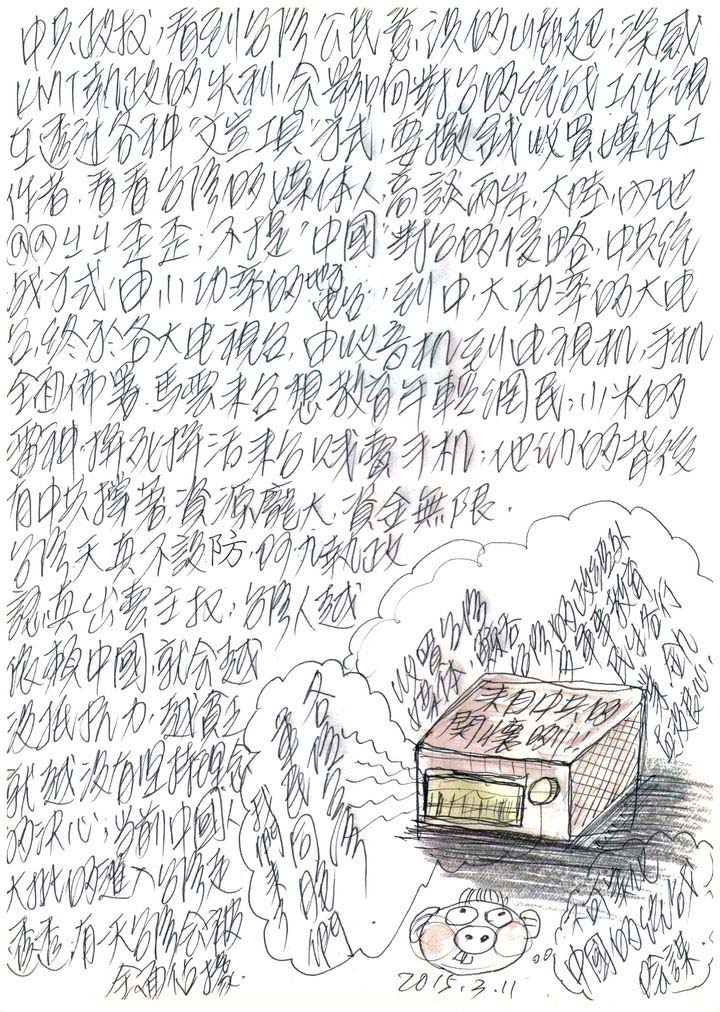 中共政权，看到台湾公民意识的崛起；深感
KMT执政的失利，会影响对台的统战工作，现
在透过各种"文宣工具"方式，要撒钱收買媒体工
作者，看看台湾的媒体人高談两岸，大陸，内地
@@ㄐㄐ歪歪；不提"中國"對台的侵略，中共统
战方式，由小功率的地下电台，到中，大功率的大电
台，终於各大电視台，由收音机到电視机，手机
全面佈署，馬雲来台想教育年輕網民；小米的
雷神，拼死拼活来台賤賣手机；他们的背後
有中共撐著，資源龐大，資金無限。
台湾天真不設防，阿九執政
認真出賣主权；台湾人越
依赖中國，就会越
没抵抗力，越貧乏
就越没有坚持理念
的决心；当前中國人
大批的進入台湾走
透透，有一天台湾会被
全面佔據。
收買台湾
媒体
来自中共的
関懷啲!!!
台湾
軍民同胞們
我們来了
中國的统战
陰謀
2015.3.11